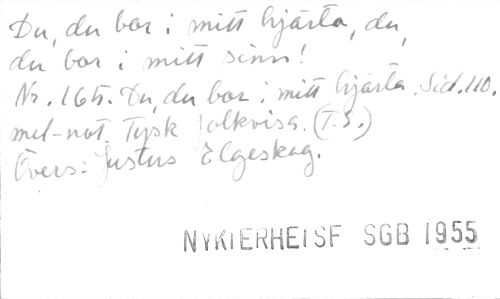 Du, du bor i mitt hjärta, du,
du bor i mitt sinn!
Nr. 165. Du, du bor i mitt hjärta. Sid. 110.
mel-not. Tysk folkvisa. (T.S.)
Övers: Justus Elgeskog.
NYKTERHETSF SGB 1955